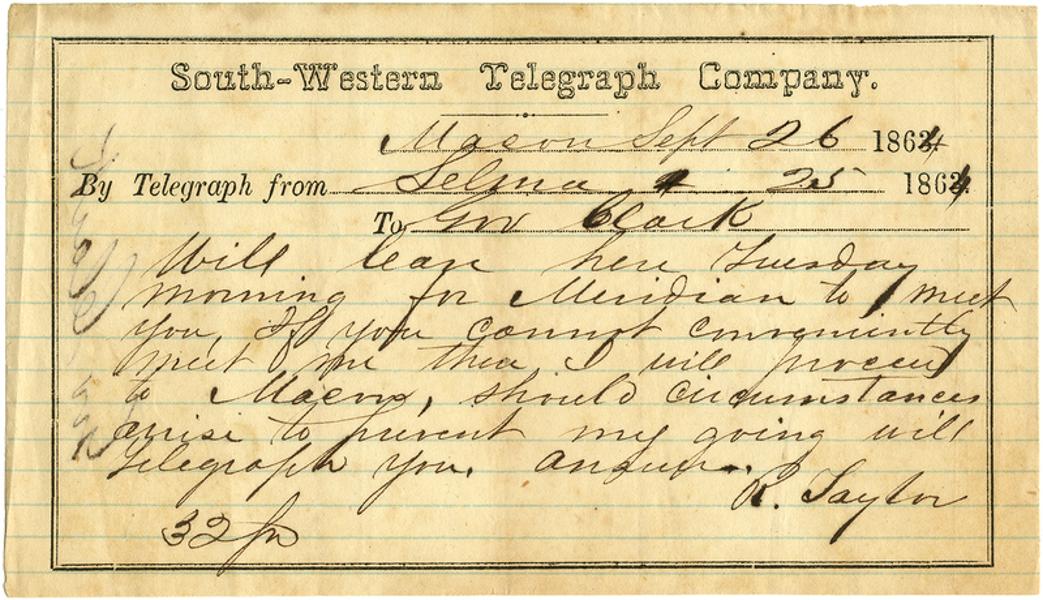 South-Western Telegraph Company.
Macon Sept 26 1864
By Telegraph from Selma 25 1864
To Gov Clark
Will leave here Tuesday
morning for Meridian to meet
you, If you cannot conveniently
meet me then I will proceed
to Macon, should circumstances
arise to prevent my going will
telegraph you. Answer.
R. Taylor
32